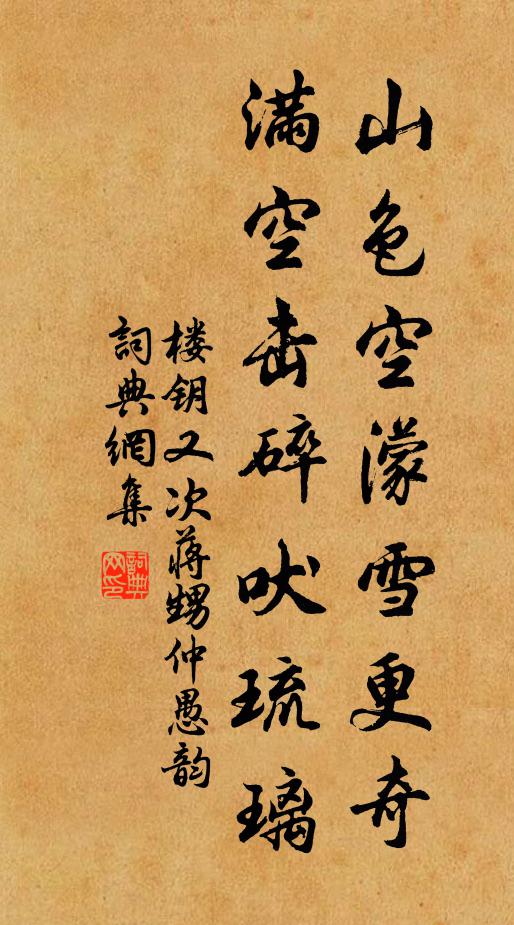 山色空濛雪更奇
满空击碎吠琉璃
楼钥又次蒋甥仲愚韵
詞典網集
詞典
网印